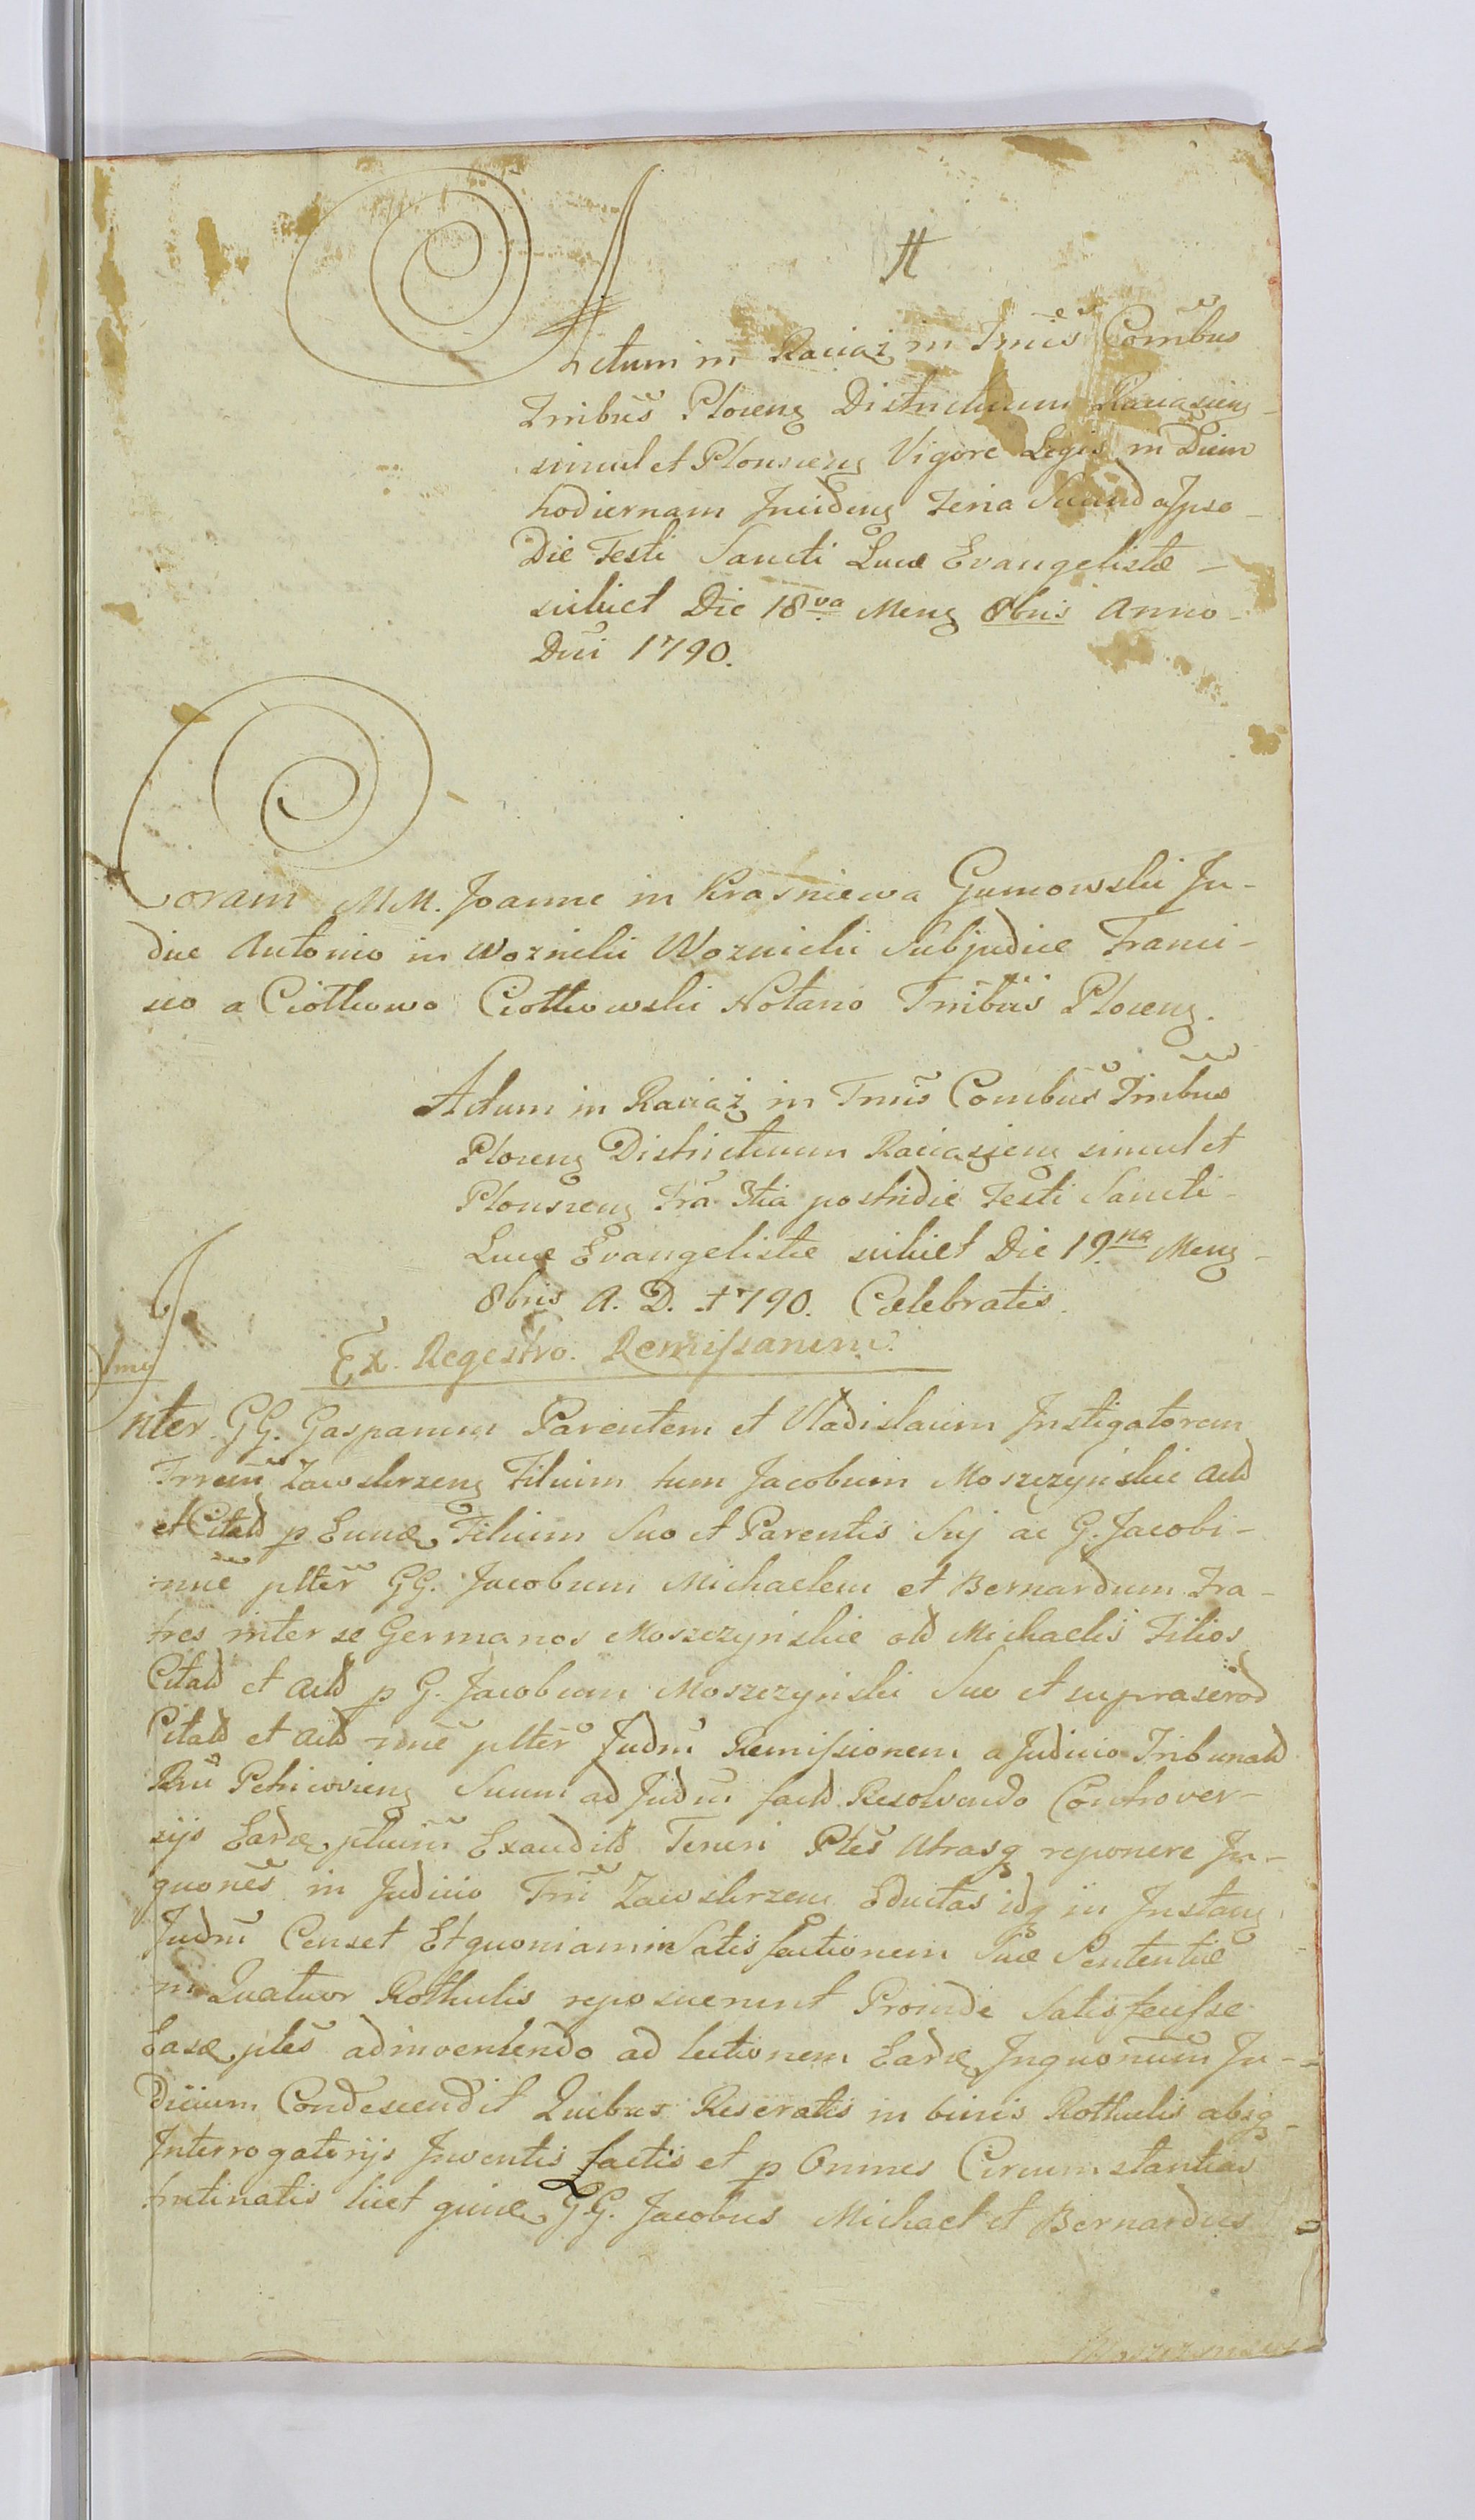 Actum in Raciąz in Tmis Combus
Tmibus Plocens Districtuum Raciąziens
simul et Plonscens Vigore Legis in Diem
hodiernam Incidens Feria Secunda Ipso
Die Festi Sancti Lucæ Evangelistæ
scilicet Die 18va Mens 8bris Anno
Dni 1790.
Coram M M. Joanne in Krasniewa Gumowski Ju-
dice Antonio in Woznicki Woznicki Subjudice Franci-
sco a Ciołkowo Ciołkowski Notario Tmibus Plocens.
Actum in Raciąz in Tmis Combus Tmibus
Plocens Districtuum Raciąziens simul et
Plonscens Fra 3tia postridie Festi Sancti
Lucæ Evangelistæ scilicet Die 19na Mens
8bris A. D. 1790. Celebratis.
Ex. Regestro. Remissarum.
Inter GG. Gasparum Parentem et Vladislaum Instigatorem
Trrum Zawskrzens Filium tum Jacobum Moszczynskie Actt
et Citatt p Filium Suo et Parentis Suj ac G. Jacobi
nne plter GG. Jacobum Michaelem et Bernardum Fra-
tres inter se Germanos Moszczynskie olt Michaelis Filios
Citatt et Actt p G. Jacobum Moszczynski Suo et suprascrod
Citatt et Actt nne plter Judm Remissionem a Judicio Tribunatt
Rni Petricoviens Suum ad Judm factt Resolvendo Controver-
sijs plurim Exauditt Teneri Ptes Utrasq reponere In-
quones in Judicio Trri Zawskrzens Eductas idq in Instans
Judm Censet Et quoniam in Satisfactionem Suæ Sententiæ
in Quatuor Rothulis reposuerunt Proinde Satisfecisse
ptes adinveniendo ad lectionem Inquonum Ju-
dicium Condescendit Quibus Reseratis in binis Rothulis absq
Interrogatorijs Inventis Lectis et p Omnes Circumstantias
trutinatis licet GG. Jacobus Michael et Bernardus